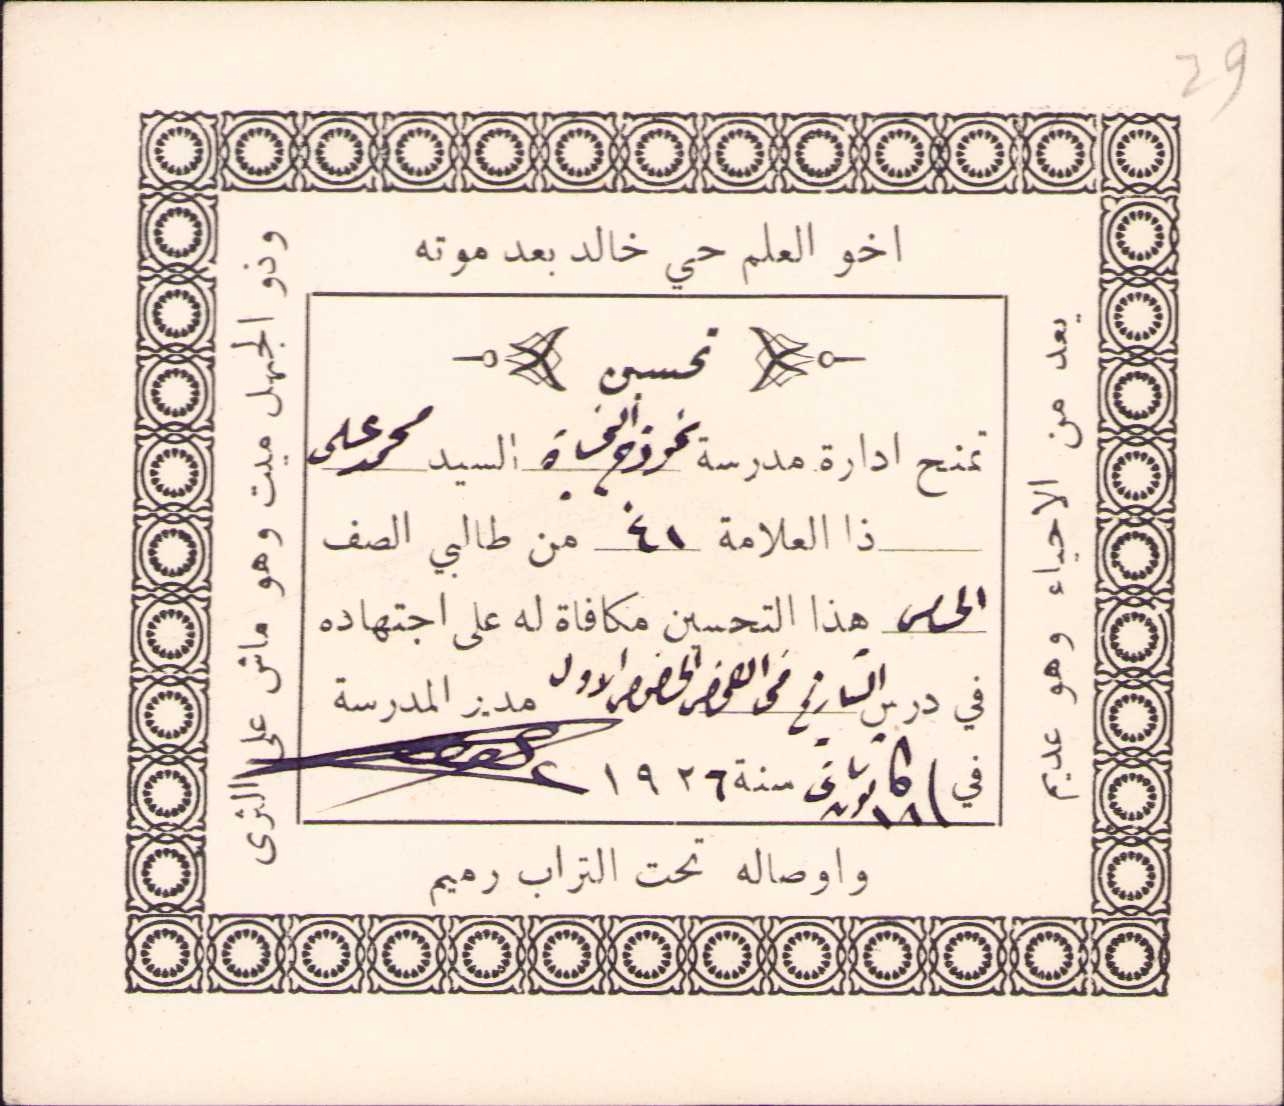 29
اخو العلم حي خالد بعد موته
واوصاله تحت التراب رميم
وذو الجهل ميت وهو ماش على الثرى
يعد من الاحياء وهو عديم
تحسين
تمنح ادارة مدرسة نموذج السيد محمد علي
ذا العلامة ٤١ من طالبي الصف
الخامس هذا التحسين مكافاة له على اجتهاده
في درس التاريخ في الفحص الخصوصي الاول مدير المدرسة
في ١٨ كانون ثاني سنة ١٩٢٦